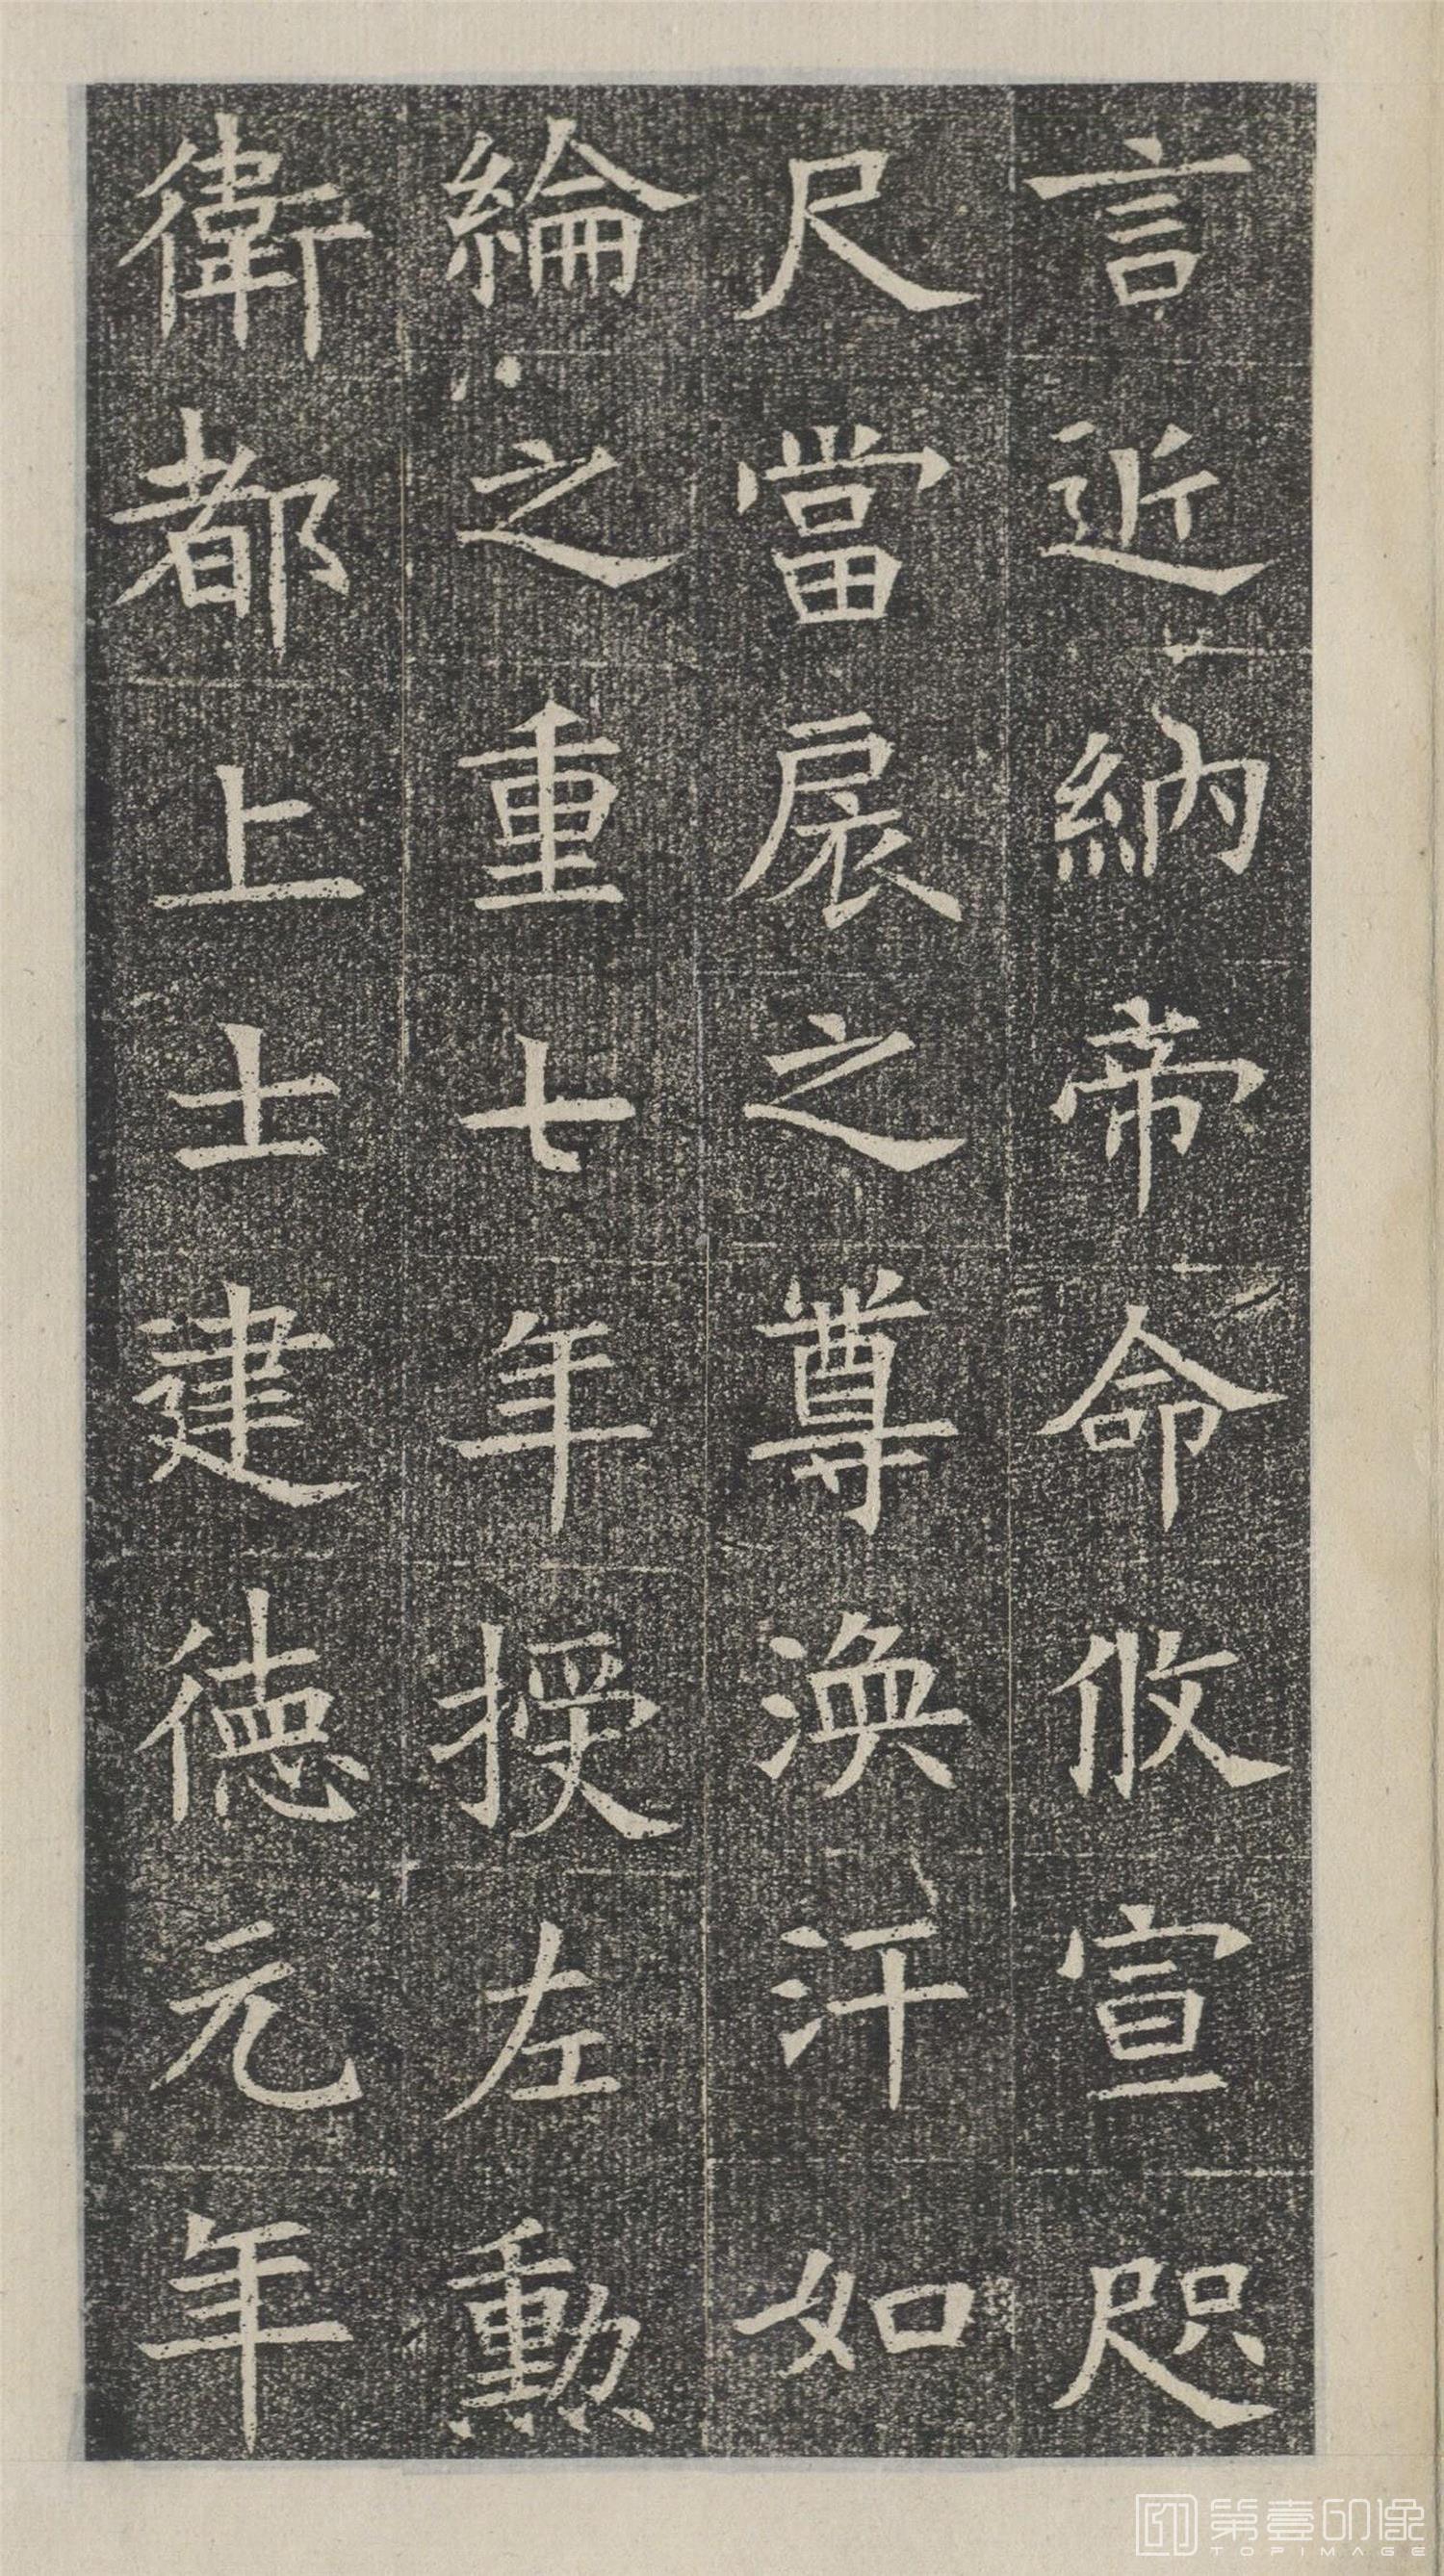 言近納帝命攸宣咫
尺當扆之尊渙汗如
綸之重七年授左勳
衛都上士建德元年
第壹印像
TOPIMAGE